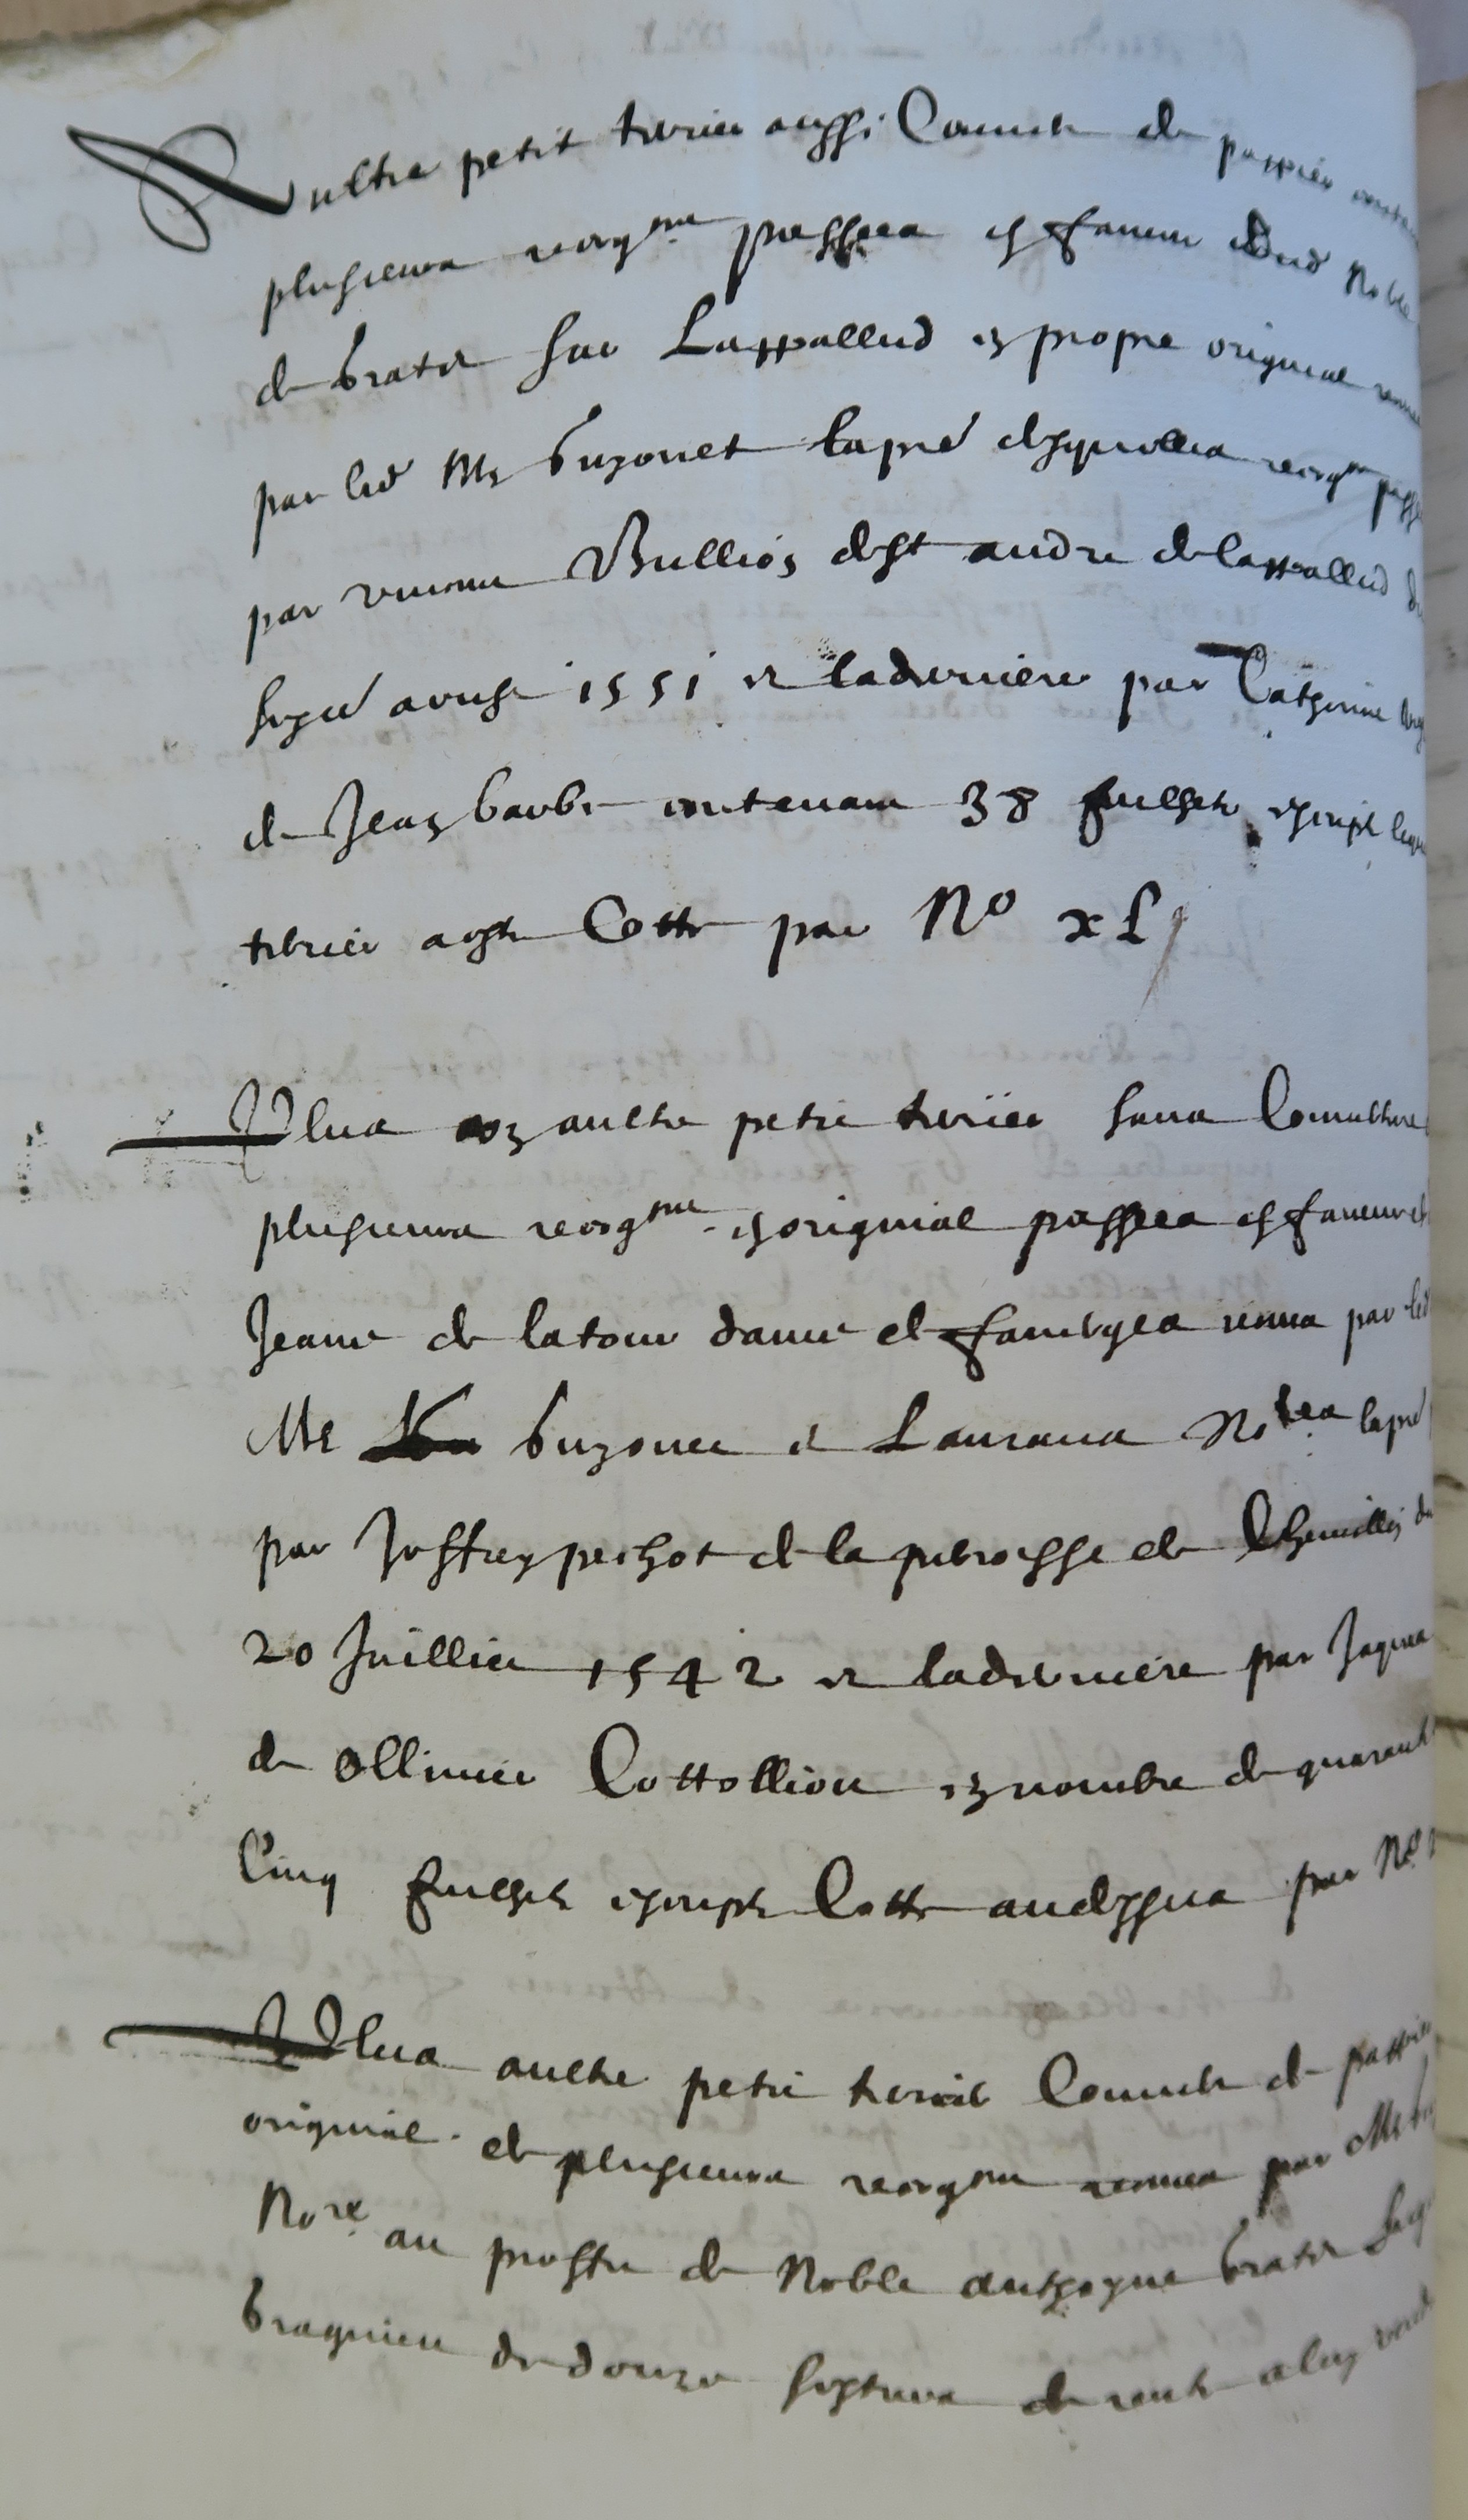 Aultre petit terrier aussi Couuert de pappier
plusieurs recog.nce passees en faueur dud Noble
de bratel sur Lappallud en propre original
par led Me buzonet la pre desquelles recog
par Bullion de st andre de lappallud
1551 et la derniere par Catherine
de Jean barbe contenant 38 feullets escripts
terrier aussi Cotte par No xL
Plus ung aultre petit terrier sans Couuerture
plusieurs recog.nce en original passees en faueur de
Jeanne de la tour dame de fauerges receues par led
Me buzonet et Laurans No.res la pre
par Joffrey pechot de la parroisse de Chemillin du
20 Juillet 1542 et la derniere par Jaques
de Ollinier Cottollion en nombre de quarante
Cinq feullets escripts Cotte au dessus par No
Plus aultre petit terrier Couuert de pappier
original de plusieurs recog.nce receues par Me
No.re au proffit de Noble anthoyne bratel
bragnieu de douze sestiers de rente a luy